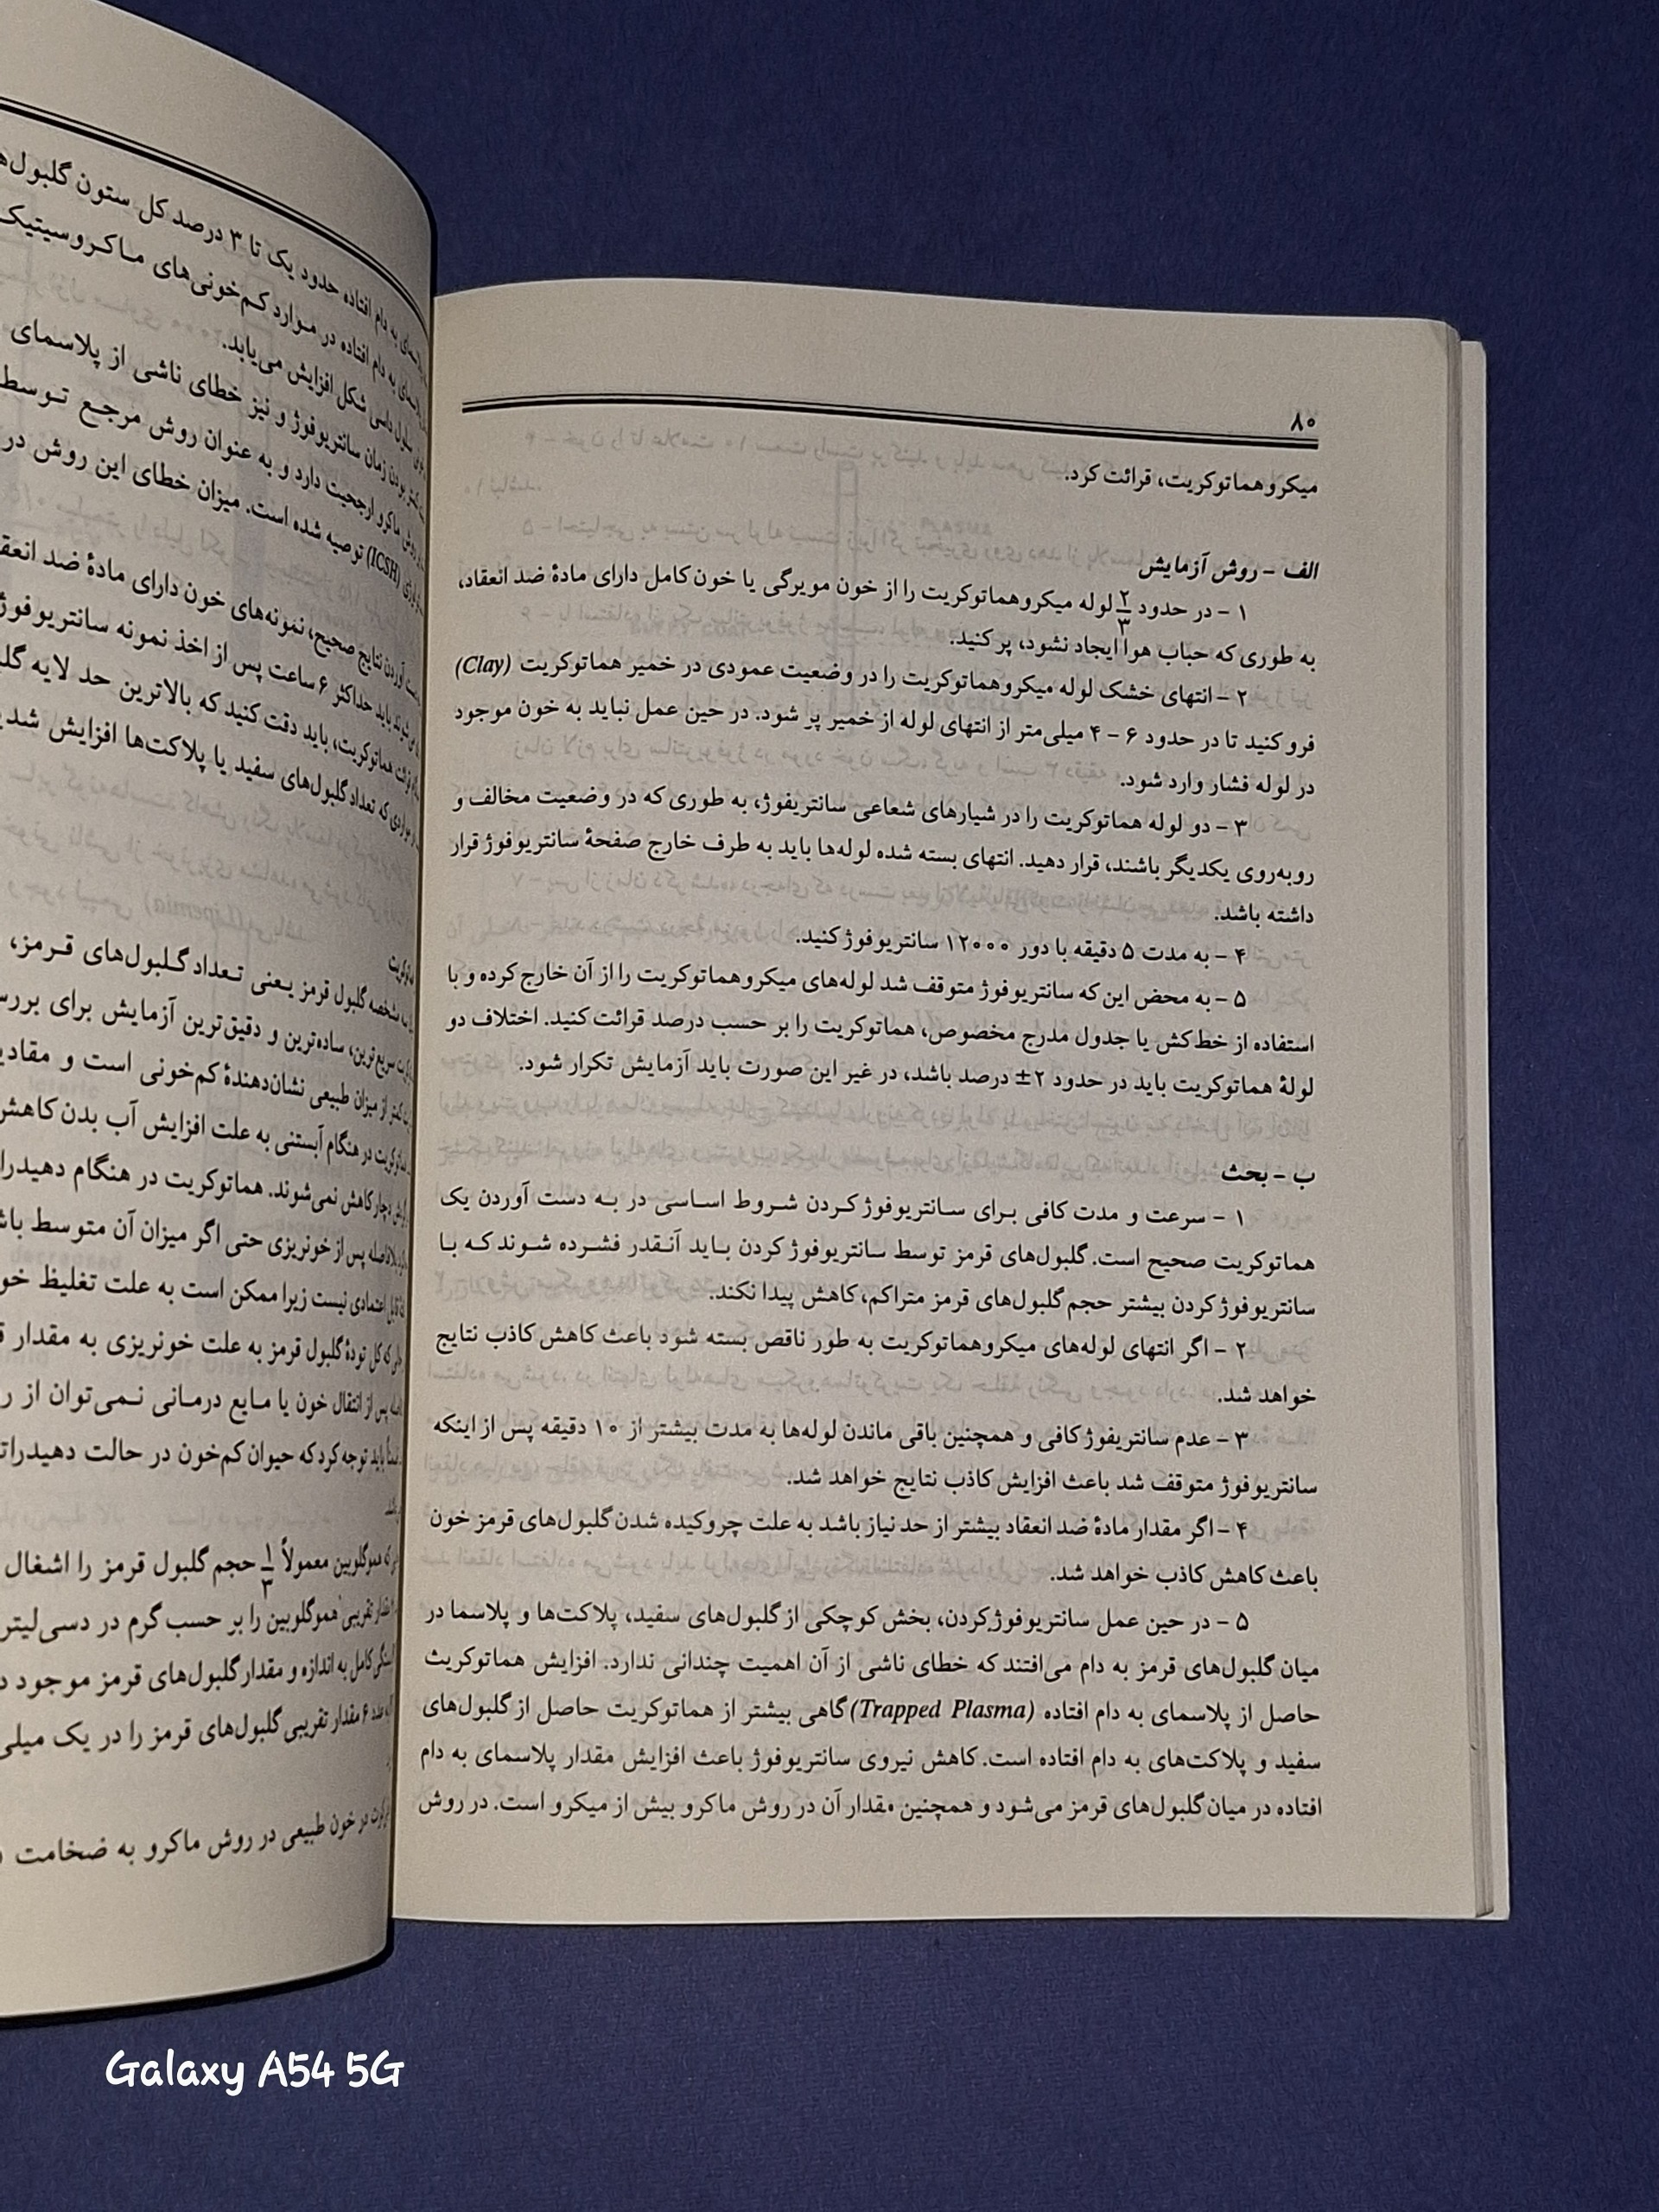 ۸۰
میکروهماتوکریت، قرائت کرد.
الف - روش آزمایش
۱ - در حدود ۲/۳ لوله میکروهماتوکریت را از خون مویرگی یا خون کامل دارای مادهٔ ضد انعقاد،
به طوری که حباب هوا ایجاد نشود، پر کنید.
۲ - انتهای خشک لوله میکروهماتوکریت را در وضعیت عمودی در خمیر هماتوکریت (Clay)
فرو کنید تا در حدود ۶ - ۴ میلی‌متر از انتهای لوله از خمیر پر شود. در حین عمل نباید به خون موجود
در لوله فشار وارد شود.
۳ - دو لوله هماتوکریت را در شیارهای شعاعی سانتریفوژ، به طوری که در وضعیت مخالف و
روبه‌روی یکدیگر باشند، قرار دهید. انتهای بسته شده لوله‌ها باید به طرف خارج صفحهٔ سانتریوفوژ قرار
داشته باشد.
۴ - به مدت ۵ دقیقه با دور ۱۲۰۰۰ سانتریوفوژ کنید.
۵ - به محض این که سانتریوفوژ متوقف شد لوله‌های میکروهماتوکریت را از آن خارج کرده و با
استفاده از خط‌کش یا جدول مدرج مخصوص، هماتوکریت را بر حسب درصد قرائت کنید. اختلاف دو
لولهٔ هماتوکریت باید در حدود ۲± درصد باشد، در غیر این صورت باید آزمایش تکرار شود.
ب - بحث
۱ - سرعت و مدت کافی برای سانتریوفوژ کردن شروط اساسی در به دست آوردن یک
هماتوکریت صحیح است. گلبول‌های قرمز توسط سانتریوفوژ کردن باید آنقدر فشرده شوند که با
سانتریوفوژ کردن بیشتر حجم گلبول‌های قرمز متراکم، کاهش پیدا نکند.
۲ - اگر انتهای لوله‌های میکروهماتوکریت به طور ناقص بسته شود باعث کاهش کاذب نتایج
خواهد شد.
۳ - عدم سانتریفوژ کافی و همچنین باقی ماندن لوله‌ها به مدت بیشتر از ۱۰ دقیقه پس از اینکه
سانتریوفوژ متوقف شد باعث افزایش کاذب نتایج خواهد شد.
۴ - اگر مقدار مادهٔ ضد انعقاد بیشتر از حد نیاز باشد به علت چروکیده شدن گلبول‌های قرمز خون
باعث کاهش کاذب خواهد شد.
۵ - در حین عمل سانتریوفوژ کردن، بخش کوچکی از گلبول‌های سفید، پلاکت‌ها و پلاسما در
میان گلبول‌های قرمز به دام می‌افتند که خطای ناشی از آن اهمیت چندانی ندارد. افزایش هماتوکریت
حاصل از پلاسمای به دام افتاده (Trapped Plasma) گاهی بیشتر از هماتوکریت حاصل از گلبول‌های
سفید و پلاکت‌های به دام افتاده است. کاهش نیروی سانتریوفوژ باعث افزایش مقدار پلاسمای به دام
افتاده در میان گلبول‌های قرمز می‌شود و همچنین مقدار آن در روش ماکرو بیش از میکرو است. در روش
به دام افتاده حدود یک تا ۳ درصد کل ستون
به دام افتاده در موارد کم‌خونی‌های ماکروسیتیک
سلول داسی شکل افزایش می‌یابد.
بودن زمان سانتریوفوژ و نیز خطای ناشی از پلاسمای
ماکرو ارجحیت دارد و به عنوان روش مرجع توسط
(ICSH) توصیه شده است. میزان خطای این روش در
آوردن نتایج صحیح، نمونه‌های خون دارای مادهٔ ضد
باید حداکثر ۶ ساعت پس از اخذ نمونه سانتریوفوژ
هماتوکریت، باید دقت کنید که بالاترین حد لایه
که تعداد گلبول‌های سفید یا پلاکت‌ها افزایش
مشخصه گلبول قرمز یعنی تعداد گلبول‌های قرمز،
سریع‌ترین، ساده‌ترین و دقیق‌ترین آزمایش برای
از میزان طبیعی نشان‌دهندهٔ کم‌خونی است و
در هنگام آبستنی به علت افزایش آب بدن کاهش
دچار کاهش نمی‌شوند. هماتوکریت در هنگام
پس از خونریزی حتی اگر میزان آن متوسط
اعتمادی نیست زیرا ممکن است به علت تغلیظ
که کل تودهٔ گلبول قرمز به علت خونریزی به مقدار
پس از انتقال خون یا مایع درمانی نمی‌توان از
باید توجه کرد که حیوان کم‌خون در حالت
که هموگلوبین معمولاً ۱/۳ حجم گلبول قرمز را اشغال
تقریبی هموگلوبین را بر حسب گرم در دسی‌لیتر
کامل به اندازه و مقدار گلبول‌های قرمز موجود
۶ مقدار تقریبی گلبول‌های قرمز را در یک
در خون طبیعی در روش ماکرو به ضخامت
Galaxy A54 5G